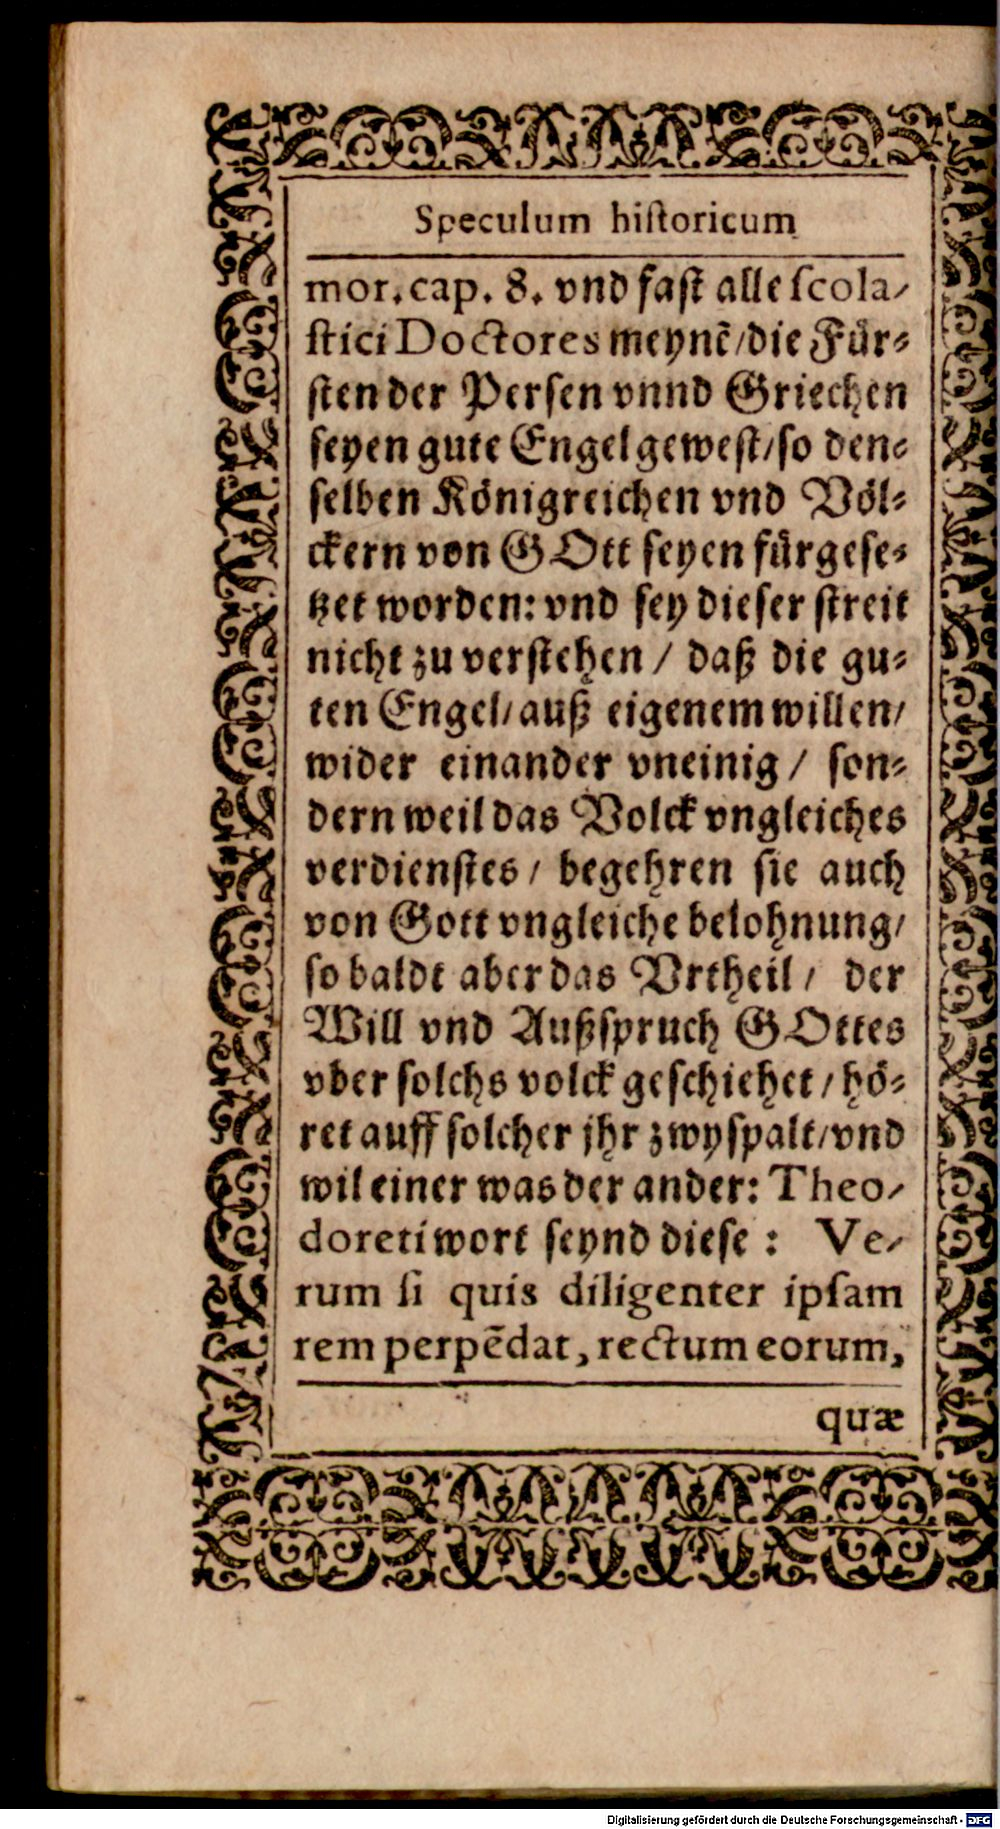 Speculum hiſtoricum
mor. cap. 8. vnd faſt alle ſcola-
ſtici Doctores meynẽ/die Für-
ſten der Perſen vnnd Griechen
ſeyen gute Engel geweſt/ſo den-
ſelben Königreichen vnd Völ-
ckern von GOtt ſeyen fürgeſe-
tzet worden: vnd ſey dieſer ſtreit
nicht zu verſtehen / daß die gu-
ten Engel/auß eigenem willen/
wider einander vneinig / ſon-
dern weil das Volck vngleiches
verdienſtes / begehren ſie auch
von Gott vngleiche belohnung/
ſo baldt aber das Vrtheil / der
Will vnd Außſpruch GOttes
vber ſolchs volck geſchiehet / hö-
ret auff ſolcher jhr zwyſpalt/vnd
wil einer was der ander: Theo-
doreti wort ſeynd dieſe : Ve-
rum ſi quis diligenter ipſam
rem perpẽdat, rectum eorum,
quæ
Digitalisierung gefördert durch die Deutsche Forschungsgemeinschaft - DFG